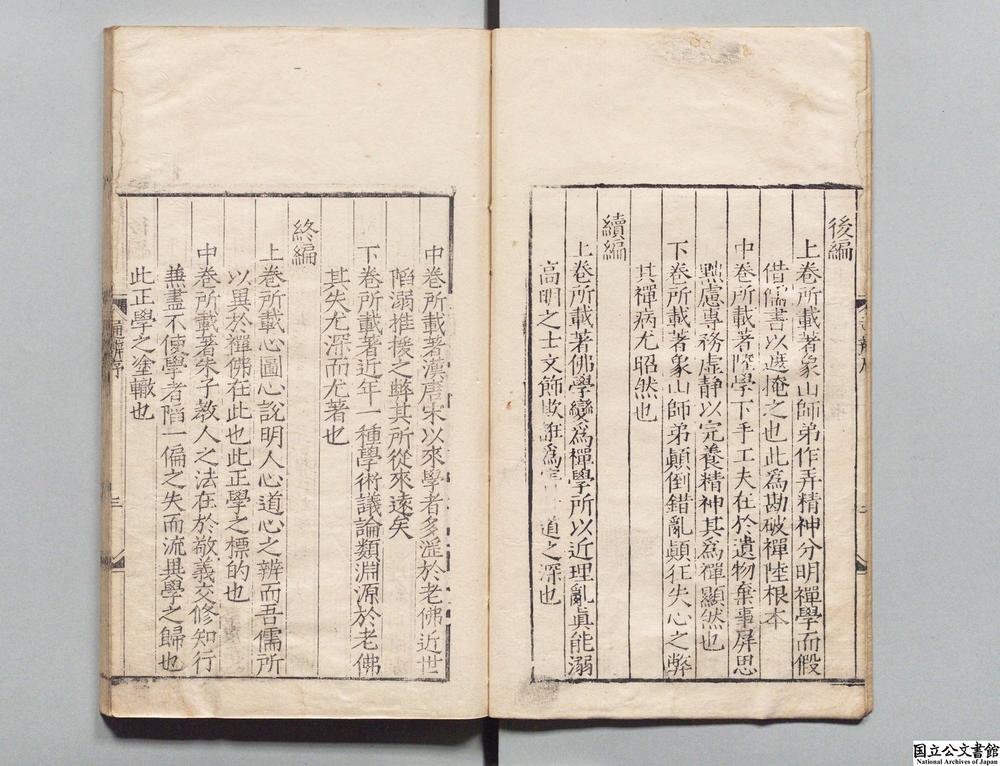 後編
上卷所載著象山師弟作弄精神分明禪學而假
借儒書以遮掩之也此為勘破禪陸根本
中卷所載著陸學下手工夫在於遺物棄事屏思
黜慮專務虛靜以完養精神其為禪顯然也
下卷所載著象山師弟顛倒錯亂顛狂失心之弊
其禪病尤昭然也
續編
上卷所載著佛學變為禪學所以近理亂眞能溺
高明之士文飾欺誑為害道之深也
中卷所載著漢唐宋以來學者多淫於老佛近世
陷溺推援之弊其所從來遠矣
下卷所載著近年一種學術議論類淵源於老佛
其失尤深而尤著也
終編
上卷所載心圖心說明人心道心之辨而吾儒所
以異於禪佛在此也此正學之標的也
中卷所載著朱子教人之法在於敬義交修知行
兼盡不使學者陷一偏之失而流異學之歸也
此正學之塗轍也
通辨序
三
国立公文書館
National Archives of Japan